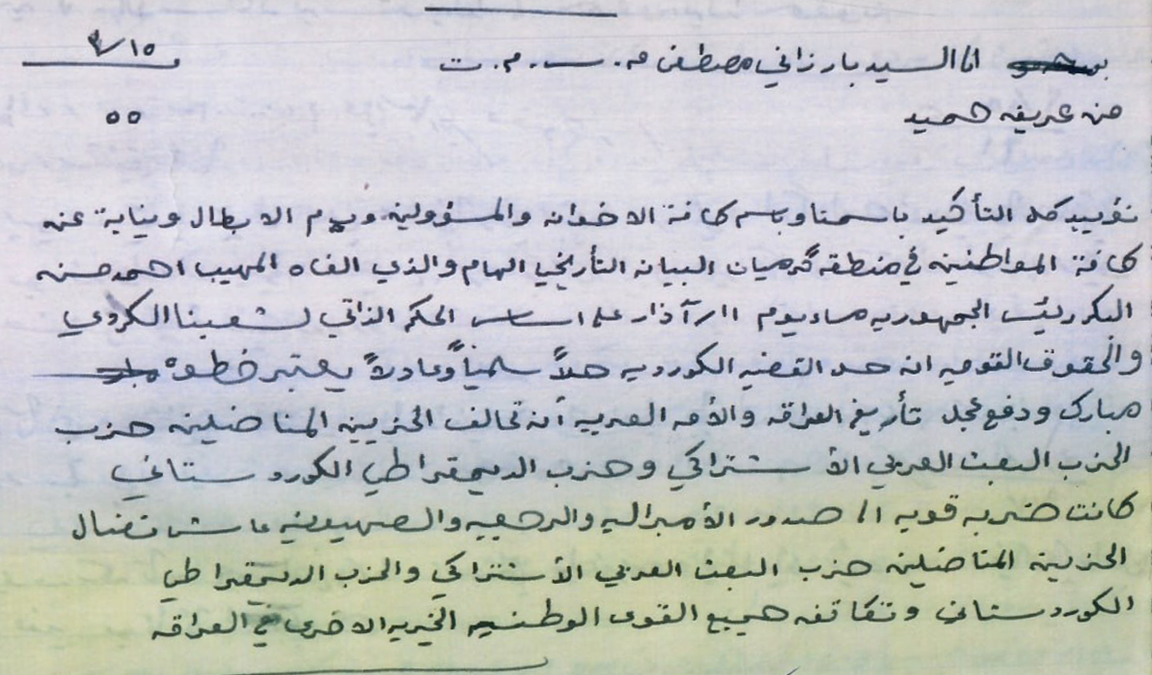 الى السيد بارزاني مصطفى م. ب. م. ت
١٥/
من عريف حميد
٥٥
نؤييد كل التأكيد باسمنا وباسم كافة الاخوان والمسؤولين ودم الابطال ونيابة عن
كافة المواطنين في منطقة گرميان البيان التأريخي الهام والذي القاه المهيب احمد حسن
البكر رئيس الجمهوريه مساء يوم ١١ آذار على اساس الحكم الذاتي لشعبنا الكردي
والحقوق القوميه ان حل القضيه الكورديه حلاً سلمياً وعادلاً يعتبر خطوة
مبارك ودفع عجل تأريخ العراق والأمه العربيه أن تحالف الحزبين المناضلين حزب
الحزب البعث العربي الأشتراكي وحزب الديمقراطي الكوردستاني
كانت ضربه قويه الى صدور الأمبراليه والرجعيه والصهيونيه عاش نضال
الحزبين المناضلين حزب البعث العربي الأشتراكي والحزب الديمقراطي
الكوردستاني وتكاتف جميع القوى الوطنيه الخيريه الاخرى في العراق